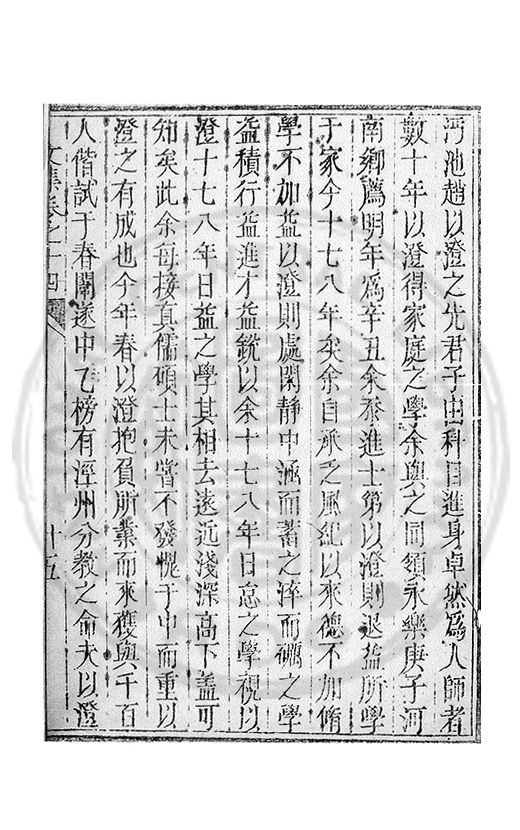 沔池趙以澄之先君子由科目進身卓然爲人師者
數十年以澄得家庭之學余與之同領永樂庚子河
南鄉薦明年爲辛丑余忝進士第以澄則退益所學
于家今十七八年矣余自承乏風紀以來德不加脩
學不加益以澄則處閑静中涵而蓄之淬而礪之學
益積行益進才益銳以余十七八年日怠之學視以
澄十七八年日益之學其相去遠近淺深高下盖可
知矣此余每接真儒碩士未嘗不發愧于中而重以
澄之有成也今年春以澄抱負所業而來獲與千百
人偕試于春闈遂中乙榜有涇州分教之命夫以澄
文集卷之十四
十五